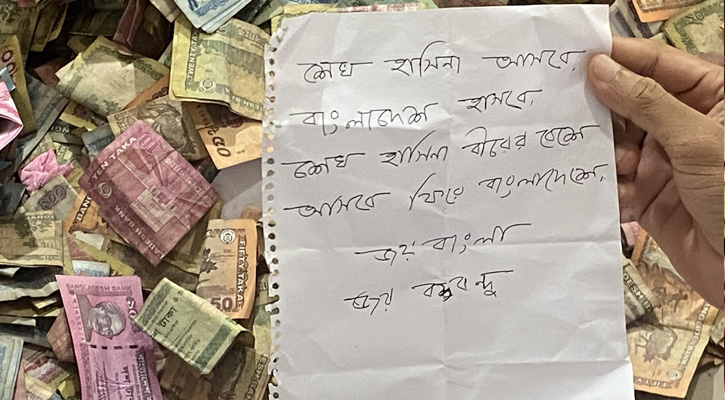 শেখ হাসিনা আসবে,
বাংলাদেশ হাসবে,
শেখ হাসিনা বীরের বেশে
আসবে ফিরে বাংলাদেশে,
জয় বাংলা
জয় বঙ্গবন্ধু
TEN TAKA
FIFTY TAKA
50
BANGLADESH BANK